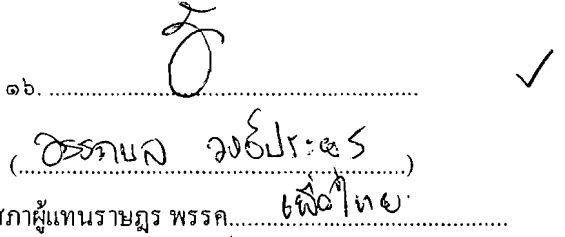 ๑๖. ........................................................
(อรรถพล วงษ์ประยูร)
สภาผู้แทนราษฎร พรรค เพื่อไทย